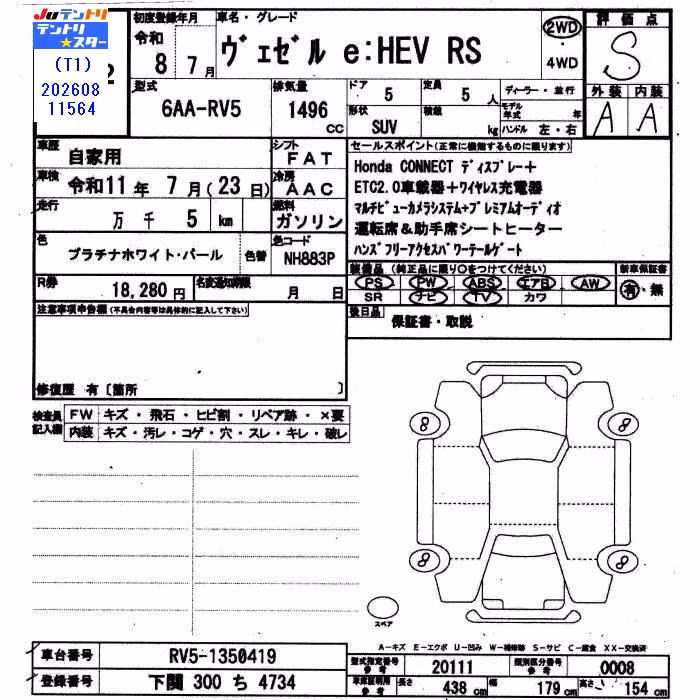 Juテントリ
テントリ★スター
(T1)
202608
11564
初度登録年月
令和
8 7月
車名・グレード
ヴェゼル e:HEV RS
2WD
・
4WD
評価点
S
外装 内装
A A
型式
6AA-RV5
排気量
1496
cc
ドア 5
形状 SUV
定員 5 人
積載 kg
ディーラー・並行
モデル年式 年
ハンドル 左・右
車歴 自家用
シフト FAT
車検 令和11年 7月(23日)
冷房 AAC
走行 万 千 5 km
燃料 ガソリン
色 プラチナホワイト・パール
色替
色コード NH883P
R券 18,280円
名変通知期限 月 日
セールスポイント(正常に機能するものに限ります)
Honda CONNECT ディスプレー+
ETC2.0車載器+ワイヤレス充電器
マルチビューカメラシステム+プレミアムオーディオ
運転席&助手席シートヒーター
ハンズフリーアクセスパワーテールゲート
装備品(純正品に限り○をつけてください)
新車保証書
PS PW ABS エアB AW
SR ナビ TV カワ
有・無
後日品
保証書・取説
注意事項申告欄(不具合内容等は具体的に記入して下さい)
修復歴 有〔箇所 〕
検査員記入欄
FW キズ・飛石・ヒビ割・リペア跡・×要
内装 キズ・汚レ・コゲ・穴・スレ・キレ・破レ
8 8
8 8
スペア
A-キズ E-エクボ U-凹み W-補修跡 S-サビ C-腐食 XX-交換済
車台番号 RV5-1350419
登録番号 下関 300 ち 4734
型式指定番号 参考 20111
類別区分番号 参考 0008
車庫証明用 参考 長さ 438 cm 幅 179 cm 高さ 154 cm